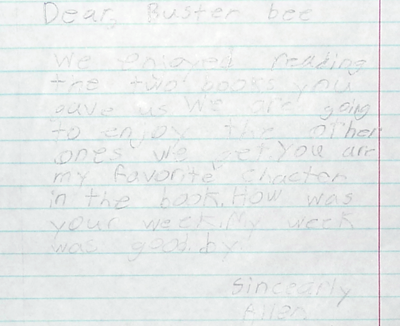 Dear, Buster bee
We enjoyed reading
the two books you
gave us We are going
to enjoy the other
ones we get. You are
my favorite chacter
in the book. How was
your week. My week
was good. by
Sincearly
Allen